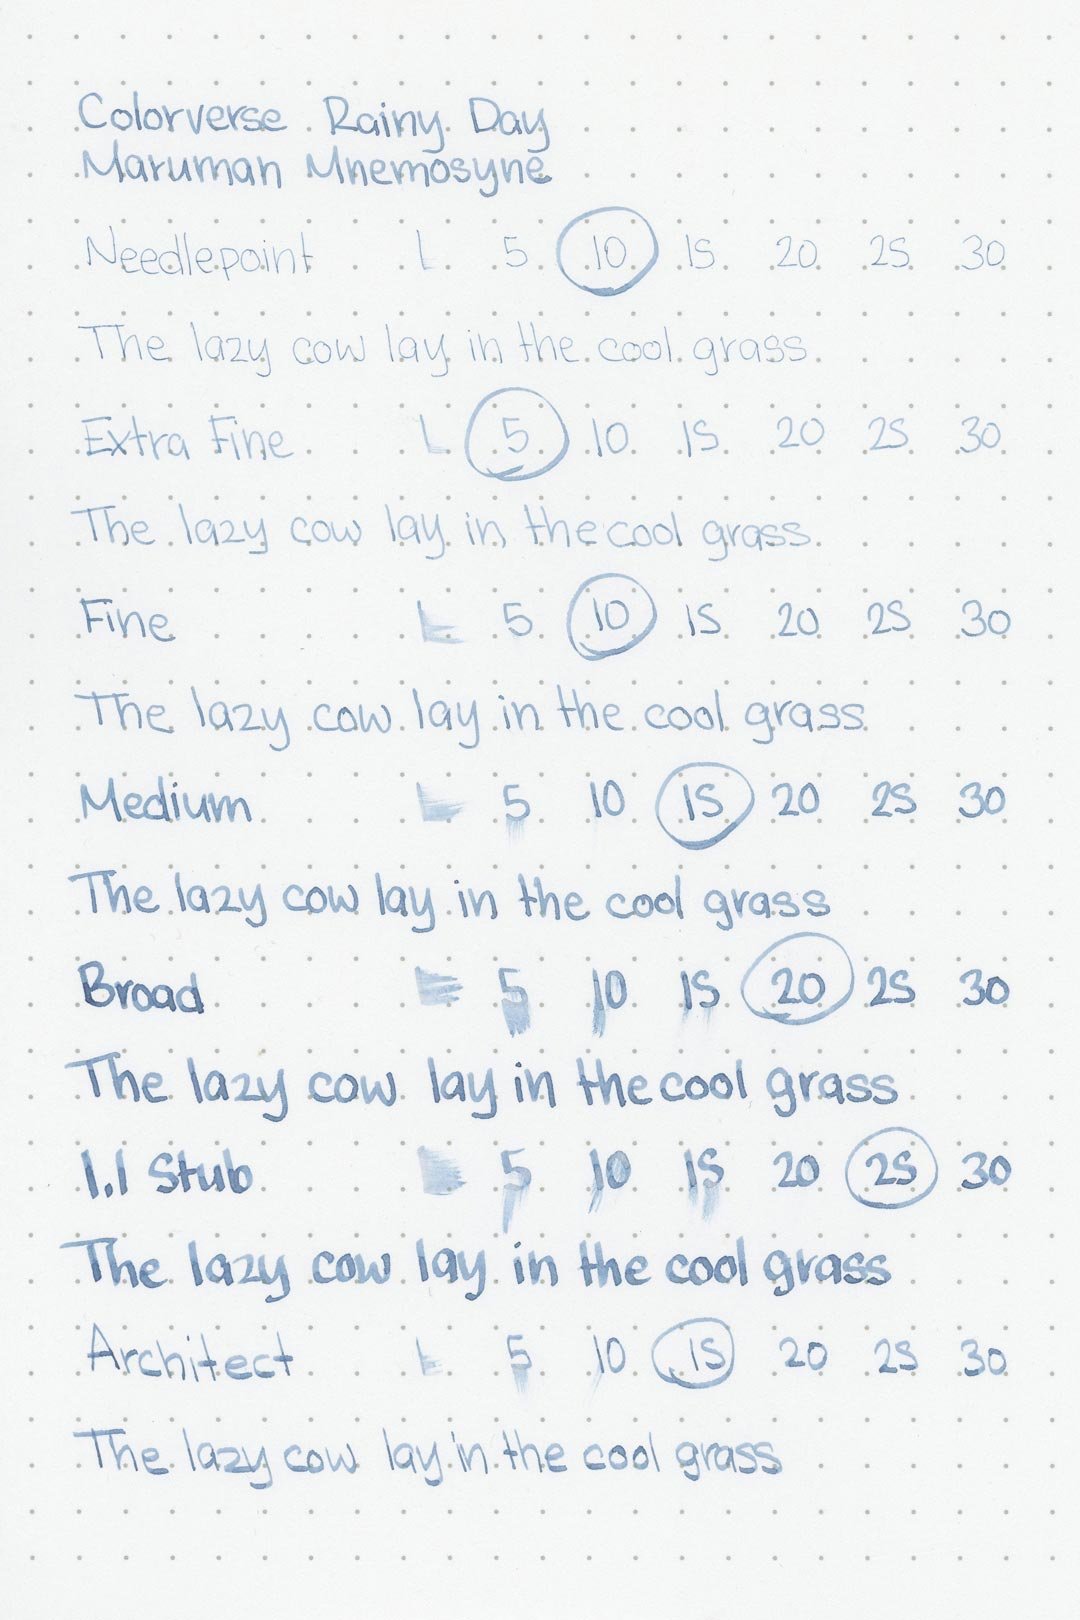 Colorverse Rainy Day
Maruman Mnemosyne
Needlepoint L 5 10 15 20 25 30
The lazy cow lay in the cool grass
Extra Fine L 5 10 15 20 25 30
The lazy cow lay in the cool grass
Fine L 5 10 15 20 25 30
The lazy cow lay in the cool grass
Medium L 5 10 15 20 25 30
The lazy cow lay in the cool grass
Broad 5 10 15 20 25 30
The lazy cow lay in the cool grass
1.1 Stub 5 10 15 20 25 30
The lazy cow lay in the cool grass
Architect L 5 10 15 20 25 30
The lazy cow lay in the cool grass